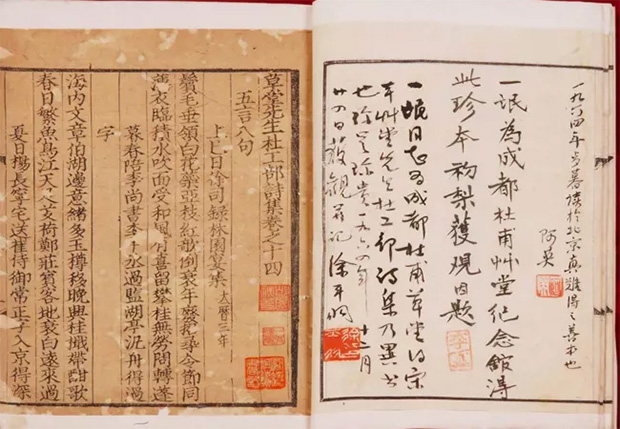 一九六四年岁暮读於北京真难得之善本也
阿英
一氓為成都杜甫艸堂纪念館得
此珍本初梨獲观因题
一氓同志为成都杜甫草堂得宋
本艸堂先生杜工部诗集乃異书
也珍貴珍貴一九六四年十二月
廿四日获観并记徐平羽
草堂先生杜工部詩集卷之十四
五言八句
上巳日徐司錄林園宴集 大曆三年
鬢毛垂領白花蘂亞枝紅欹倒衰年廢招尋令節同
薄衣臨積水吹面受和風有喜留攀桂無勞問轉蓬
暮春陪李尚書李中丞過鄭監湖亭汎舟得過
字
海內文章伯湖邊意緒多玉樽移晚興桂楫帶酣歌
春日繁魚鳥江天足芰荷鄭莊賓客地衰白遠來過
夏日楊長寧宅送崔侍御常正字入京得深